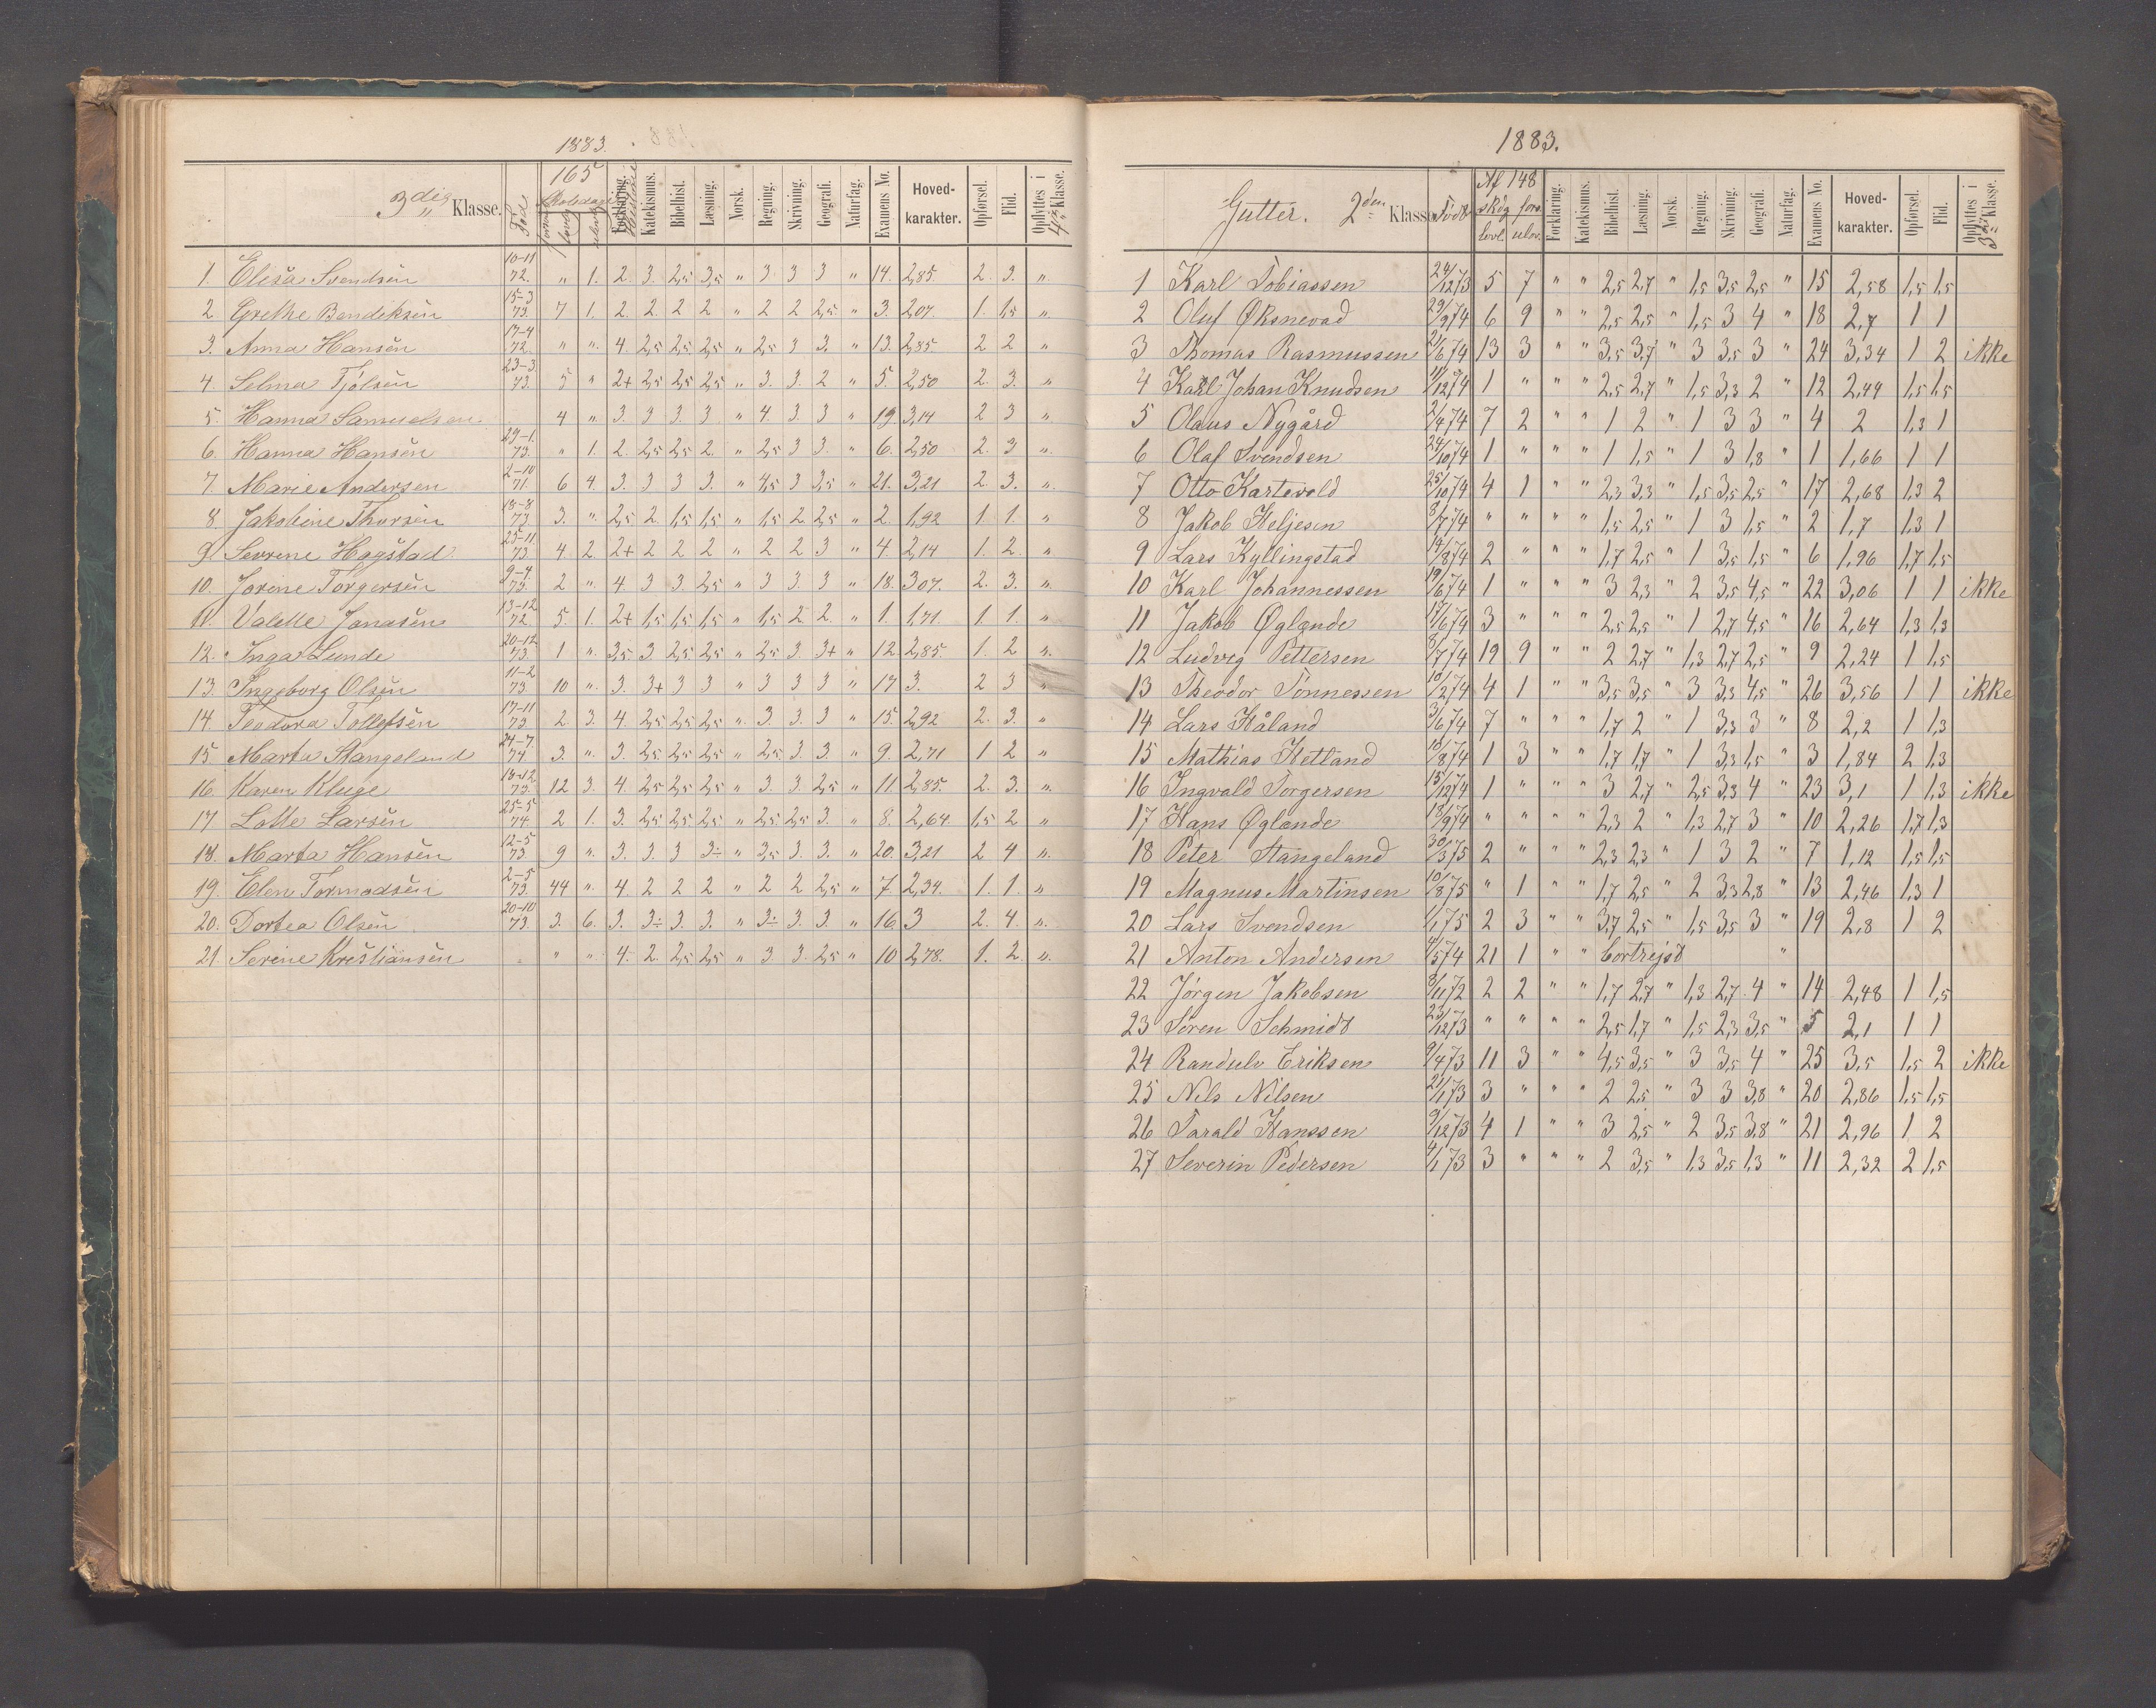 1883.
3die Klasse. Fød 165 Skoledage Katekismus. Bibelhist. Læsning. Norsk. Regning. Skrivning. Geografi. Naturfag. Examens No. Hoved-karakter. Opførsel. Flid. Opflyttes i 4de Klasse.
1. Elisa Svendsen 10-11 72. " 1. 2. 3. 2,5 3,5 " 3 3 3 " 14. 2,85. 2. 3. "
2 Grethe Bendiksen 15-3 73. 7 1. 2. 2. 2 2 " 2 2 2,5 " 3. 2,07. 1. 1,5 "
3. Anna Hansen 17-4 72. " " 4. 2,5 2,5 2,5 " 2,5 3 3. " 13. 2,85. 2 2 "
4. Selma Tjølsen 23-3 73. 5 " 2+ 2,5 2,5 2,5 " 3. 3. 2 " 5. 2,50 2. 3. "
5. Hanna Samuelsen 4 " 3. 3 3. 3. " 4. 3 3 " 19 3,14 2 3 "
6. Hanna Hansen 29-1. 73. " 1. 2. 2,5 2,5 2. " 2,5 3 3. " 6. 2,50 2. 3 "
7. Marie Andersen 2-10 71 6 4. 3. 3 3 3. " 4,5 3 3,5 " 21. 3,21 2. 3. "
8. Jakobine Thorsen 18-8 73 3. " 2,5 2. 1,5 1,5 " 1,5 2. 2,5 " 2. 1,92 1. 1. "
9. Sevrene Hogstad. 25-11 73 4. 2. 2+ 2 2 2 " 2 2 3 " 4. 2,14 1. 2. "
10. Jorine Torgersen 9-4 73. 2 " 4. 3 3. 2,5 " 3 3. 3 " 18. 3,07. 2. 3. "
11. Valette Jonasen 13-12 72. 5. 1. 2+ 1,5 1,5 1,5 " 1,5 2. 2. " 1. 1,71. 1. 1. "
12. Inga Lunde 20-12 73. 1 " 3,5 3. 2,5 2,5 " 2,5 3. 3+ " 12. 2,85. 1. 2 "
13. Ingeborg Olsen 11-2 73. 10 " 3. 3+ 3 3 " 3 3 3 " 17 3. 2 3 "
14. Teodora Tollefsen 17-11 73 2. 3. 4. 2,5 2,5 2,5 " 3. 3. 3 " 15. 2,92 2. 3. "
15 Marta Stangeland 24-7. 74 3. " 3. 2,5 2,5 2,5 " 2,5 3. 3. " 9. 2,71 1 2 "
16. Karen Kluge 14-12 73. 12 3. 4. 2,5 2,5 2,5 " 3. 3. 2,5 " 11. 2,85. 2. 3. "
17 Lotte Larsen 25-5 74 2 1. 3. 2,5 2,5 2,5 " 2,5 2,5 3. " 8. 2,64. 1,5 2 "
18. Marta Hansen 12-5 73 9 " 3. 3. 3 3÷ " 3,5 3. 3. " 20. 3,21 2 4 "
19. Elen Tormodsen 2-5 73. 44 " 4. 2 2 2 " 2 2 2,5 " 7. 2,34. 1. 1. "
20. Dortea Olsen 20-10 73. 3. 6. 3. 3÷ 3. 3. " 3÷ 3. 3. " 16. 3 2. 4. "
21. Serine Kristiansen " " 4. 2. 2,5 2,5 " 3 3. 2,5 " 10 2,78. 1. 2. "
1883.
Gutter. 2den Klasse Født Af 148 skdg fors. lovl. ulov. Forklaring. Katekismus. Bibelhist. Læsning. Norsk. Regning. Skrivning. Geografi. Naturfag. Examens No. Hoved-karakter. Opførsel. Flid. Opflyttes i 3die Klasse.
1 Karl Tobiassen 24/12 73 5 7 " " 2,5 2,7 " 1,5 3,5 2,5 " 15 2,58 1,5 1,5
2 Oluf Øksnevad 29/9 74 6 9 " " 2,5 2,5 " 1,5 3 4 " 18 2,7 1 1
3 Thomas Rasmussen 21/6 74 13 3 " " 3,5 3,7 " 3 3,5 3 " 24 3,34 1 2 ikke
4 Karl Johan Knudsen 11/12 74 1 " " " 2,5 2,7 " 1,5 3,3 2 " 12 2,44 1,5 1,5
5 Olaus Nygård 2/4 74 7 2 " " 1 2 " 1 3 3 " 4 2 1,3 1
6 Olaf Svendsen 24/10 74 1 " " " 1 1,5 " 1 3 1,8 " 1 1,66 1 1
7 Otto Kartevold 25/10 74 4 1 " " 2,3 3,3 " 1,5 3,5 2,5 " 17 2,68 1,3 2
8 Jakob Heljesen 8/7 74 " " " " 1,5 2,5 " 1 3 1,5 " 2 1,7 1,3 1
9 Lars Kyllingstad 14/8 74 2 " " " 1,7 2,5 " 1 3,5 1,5 " 6 1,96 1,7 1,5
10 Karl Johannessen 19/6 74 1 " " " 3 2,3 " 2 3,5 4,5 " 22 3,06 1 1 ikke
11 Jakob Øglænde 17/6 74 3 " " " 2,5 2,5 " 1 2,7 4,5 " 16 2,64 1,3 1,3
12 Ludvig Pettersen 8/7 74 19 9 " " 2 2,7 " 1,3 2,7 2,5 " 9 2,24 1 1,5
13 Theodor Tønnessen 10/2 74 4 1 " " 3,5 3,5 " 3 3,3 4,5 " 26 3,56 1 1 ikke
14 Lars Håland 3/6 74 7 " " " 1,7 2 " 1 3,3 3 " 8 2,2 1 1,3
15 Mathias Hetland 10/8 74 1 3 " " 1,7 1,7 " 1 3,3 1,5 " 3 1,84 2 1,3
16 Ingvald Torgersen 15/12 74 1 " " " 3 2,7 " 2,5 3,3 4 " 23 3,1 1 1,3 ikke
17 Hans Øglænde 18/9 74 " " " " 2,3 2 " 1,3 2,7 3 " 10 2,26 1,7 1,3
18 Peter Stangeland 30/3 75 2 " " " 2,3 2,3 " 1 3 2 " 7 1,12 1,5 1,5
19 Magnus Martinsen 10/8 75 " 1 " " 1,7 2,5 " 2 3,3 2,8 " 13 2,46 1,3 1
20 Lars Svendsen 1/1 75 2 3 " " 3,7 2,5 " 1,5 3,5 3 " 19 2,8 1 2
21 Anton Andersen 4/5 74 21 1 " " bortrejst "
22 Jørgen Jakobsen 8/11 72 2 2 " " 1,7 2,7 " 1,3 2,7 4 " 14 2,48 1 1,5
23 Søren Schmidt 23/12 73 " " " " 2,5 1,7 " 1,5 2,3 3,5 " 5 2,1 1 1
24 Randulv Eriksen 9/4 73 11 3 " " 4,5 3,5 " 3 3,5 4 " 25 3,5 1,5 2 ikke
25 Nils Nilsen 21/1 73 3 " " " 2 2,5 " 3 3 3,8 " 20 2,86 1,5 1,5
26 Tarald Hanssen 9/12 73 4 1 " " 3 2,5 " 2 3,5 3,8 " 21 2,96 1 2
27 Severin Pedersen 4/1 73 3 " " " 2 3,5 " 1,3 3,5 1,3 " 11 2,32 2 1,5